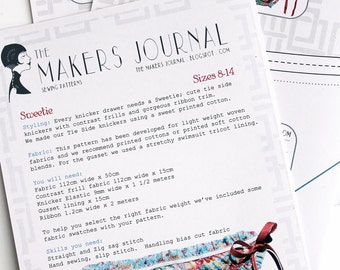 THE
MAKERS JOURNAL
SEWING PATTERNS
THE MAKERS JOURNAL. BLOGSPOT. COM
Sweetie
Sizes 8-14
Styling: Every knicker drawer needs a Sweetie; cute tie side
knickers with contrast frills and gorgeous ribbon trim.
We made our Tie Side knickers using a sweet printed cotton.
Fabric: This pattern has been developed for light weight woven
fabrics and we recommend printed cottons or printed soft cotton
blends. For the gusset we used a stretchy swimsuit tricot lining.
You will need:
Fabric 112cm wide x 50cm
Contrast frill fabric 112cm wide x 15cm
Knicker Elastic 9mm wide x 1 1/2 meters
Gusset lining x 15cm
Ribbon 1.2cm wide x 2 meters
To help you select the right fabric weight we've included some
fabric swatches with your pattern.
Skills you need:
Straight and Zig zag stitch
Hand sewing, slip stitch. Handling bias cut fabric